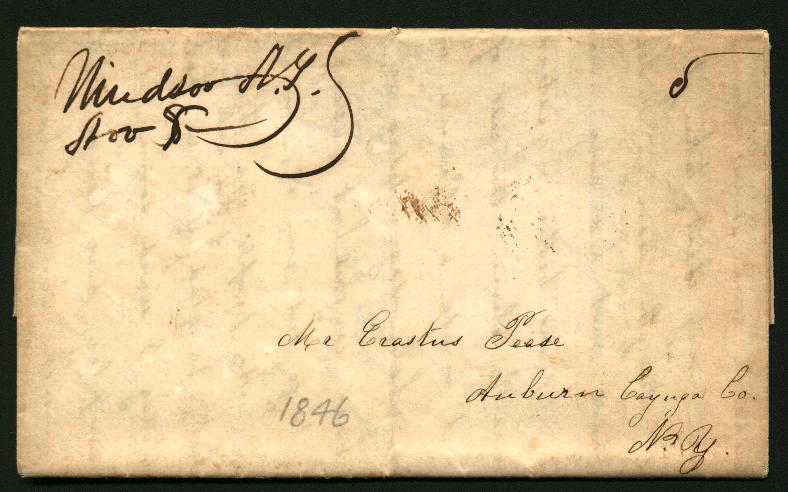 Windsor N.Y.
Nov 8
5
Mr Erastus Pease
Auburn Cayuga Co.
N. Y.
1846